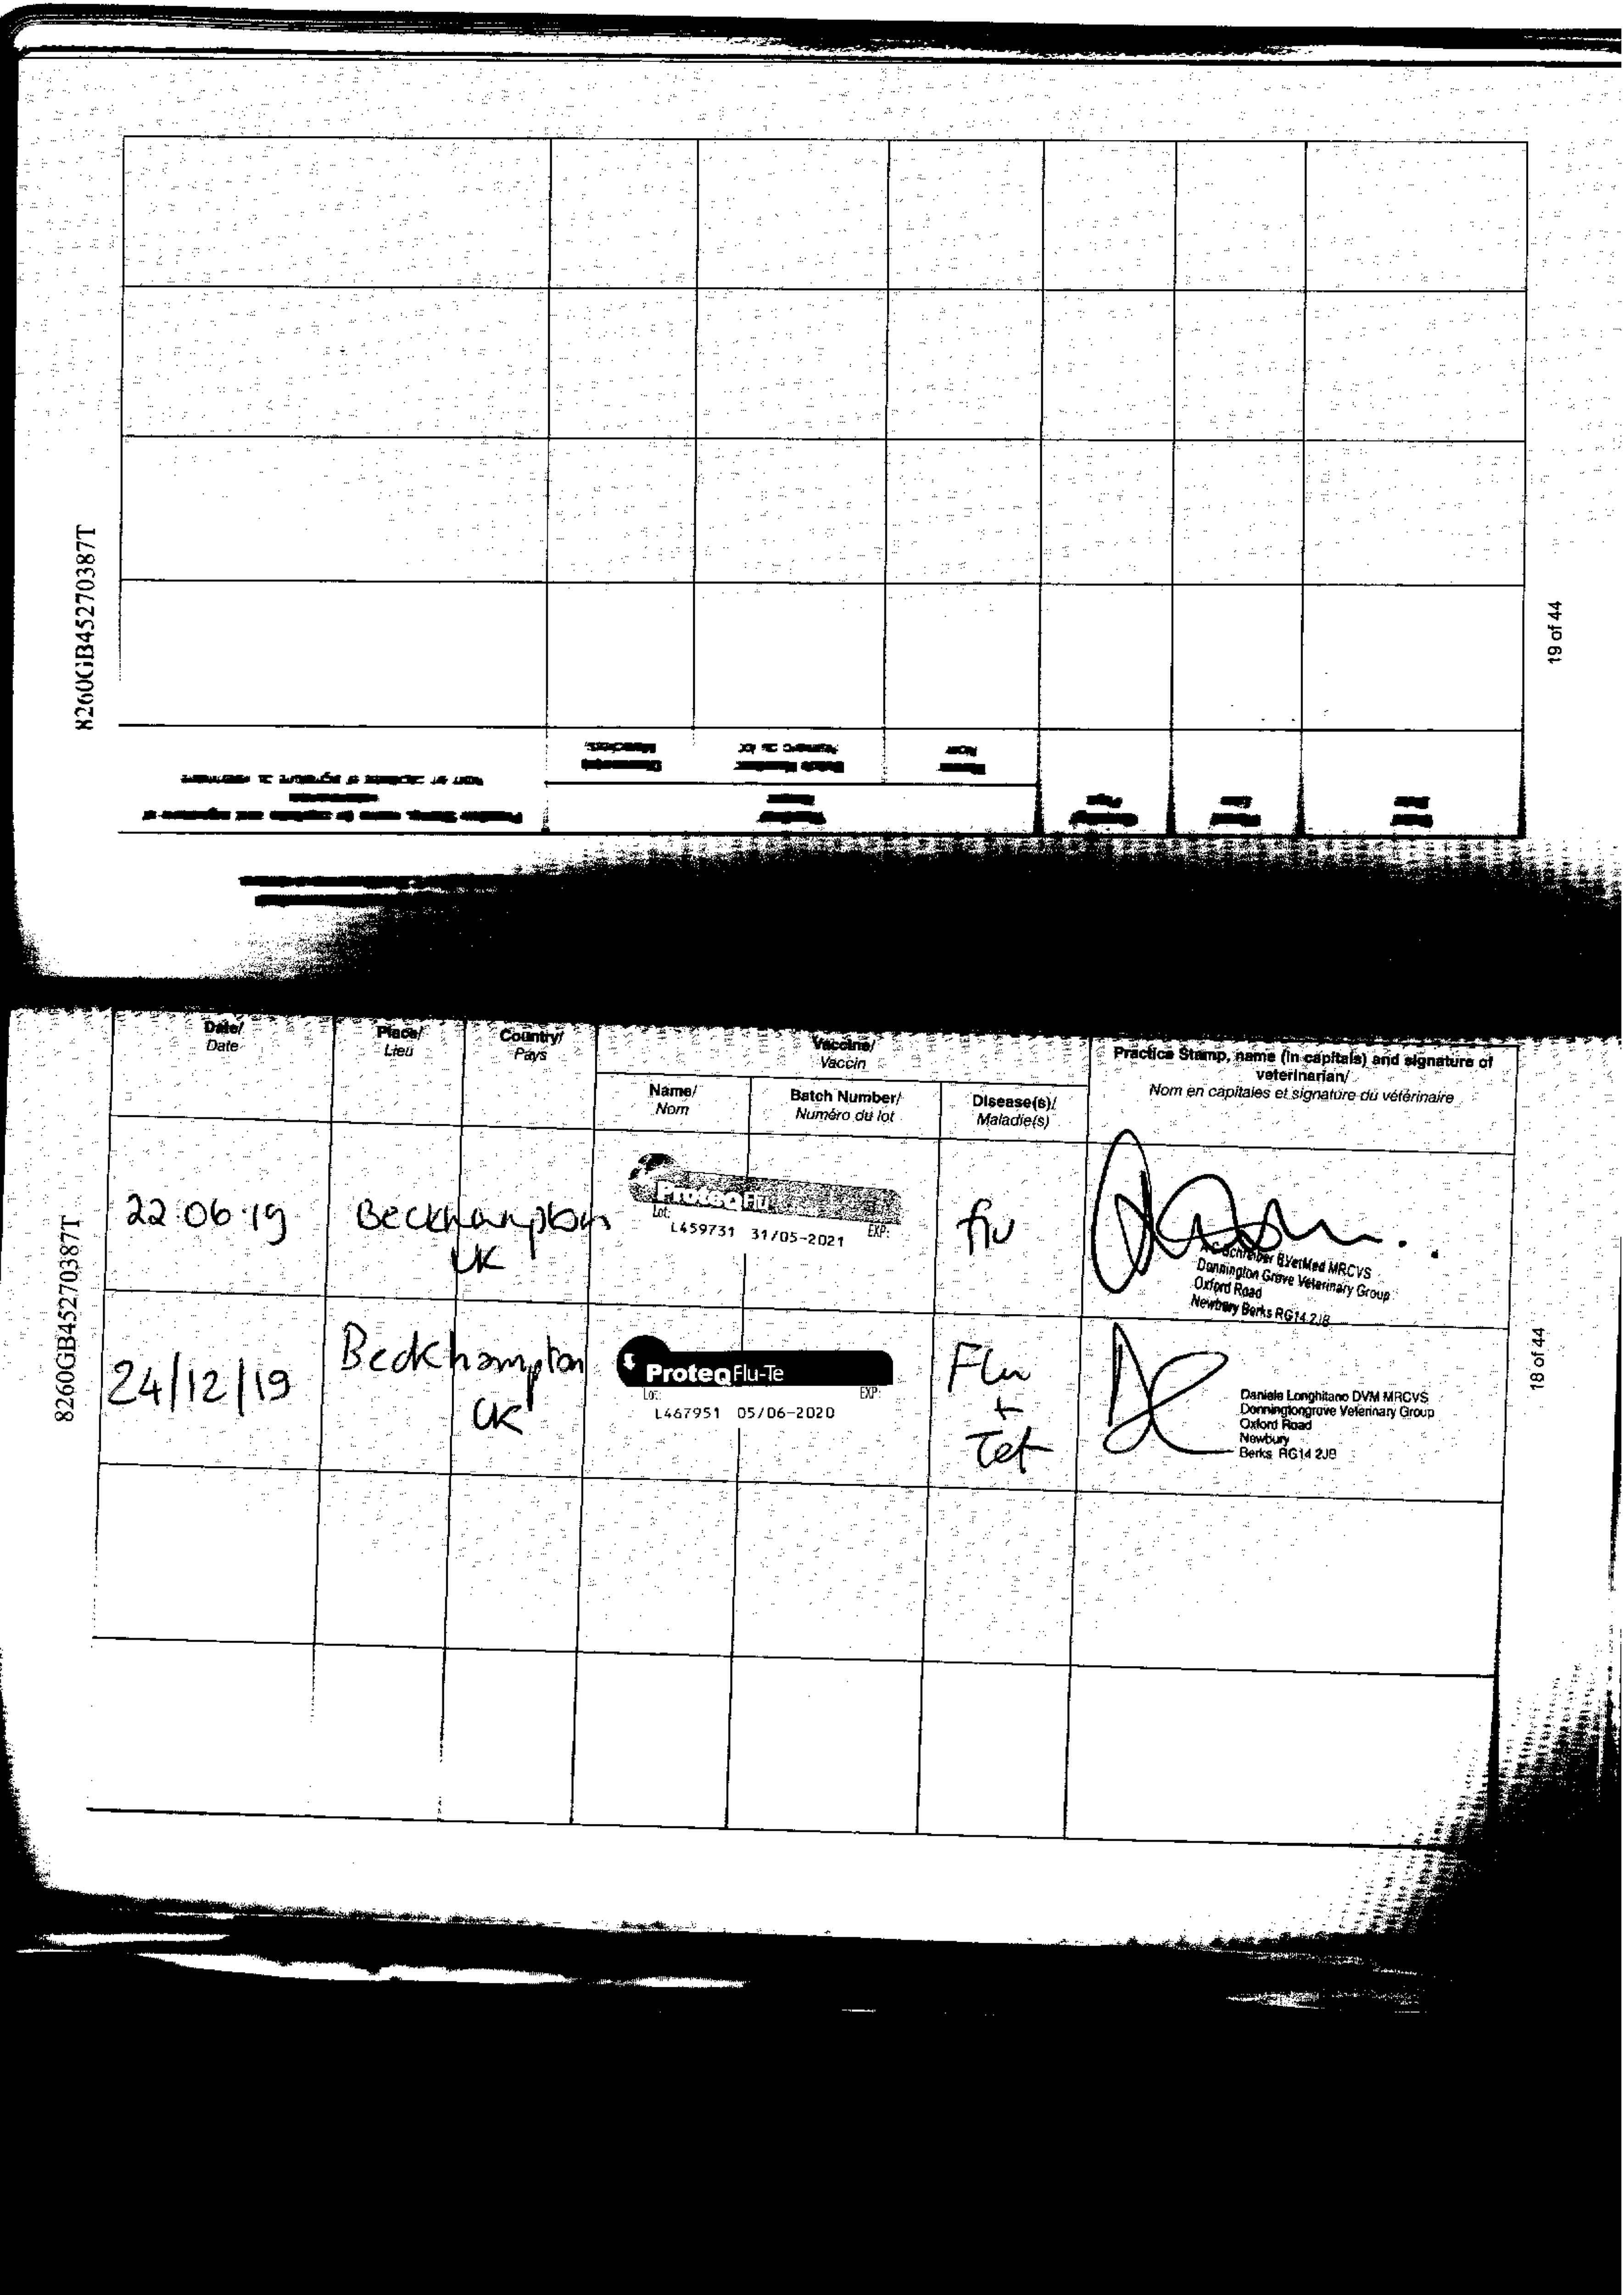 8260GB45270387T
19 of 44
Date/
Date
Place/
Lieu
Country/
Pays
Vaccine/
Vaccin
Name/
Nom
Batch Number/
Numéro du lot
Disease(s)/
Maladie(s)
Practice Stamp, name (in capitals) and signature of
veterinarian/
Nom en capitales et signature du vétérinaire
22.06.19
Beckhampton
UK
ProteqFlu
Lot:
EXP:
L459731 31/05-2021
flu
A C Schreiber BVetMed MRCVS
Donnington Grove Veterinary Group
Oxford Road
Newbury Berks RG14 2JB
24/12/19
Beckhampton
UK
ProteqFlu-Te
Lot:
EXP:
L467951 05/06-2020
Flu
+
Tet
Daniele Longhitano DVM MRCVS
Donningtongrove Veterinary Group
Oxford Road
Newbury
Berks RG14 2JB
8260GB45270387T
18 of 44